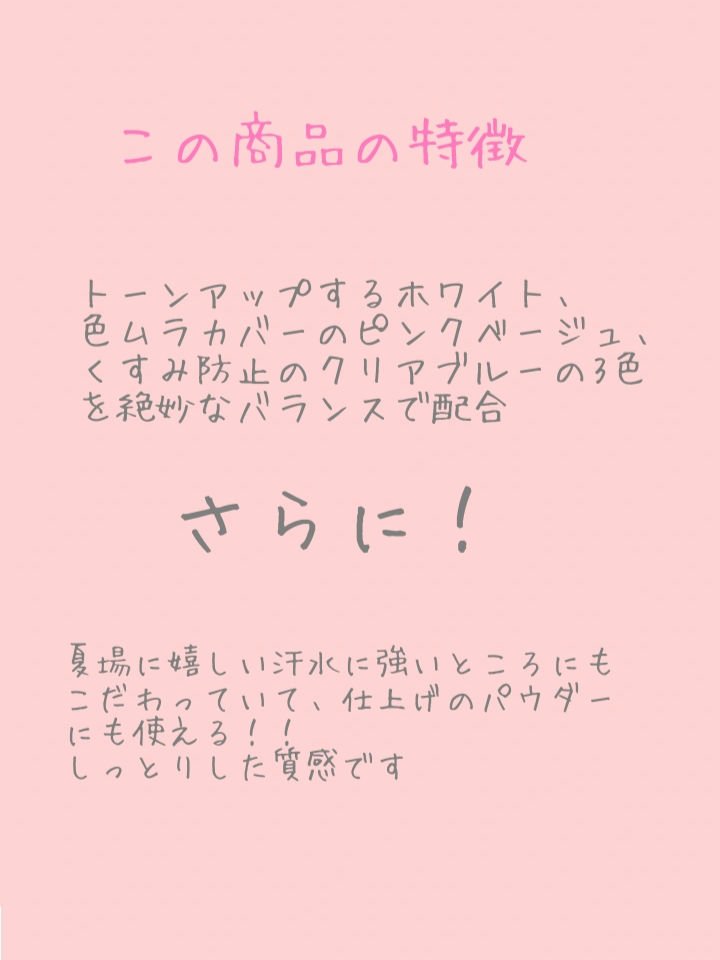 この商品の特徴
トーンアップするホワイト、
色ムラカバーのピンクベージュ、
くすみ防止のクリアブルーの3色
を絶妙なバランスで配合
さらに！
夏場に嬉しい汗水に強いところにも
こだわっていて、仕上げのパウダー
にも使える！！
しっとりした質感です